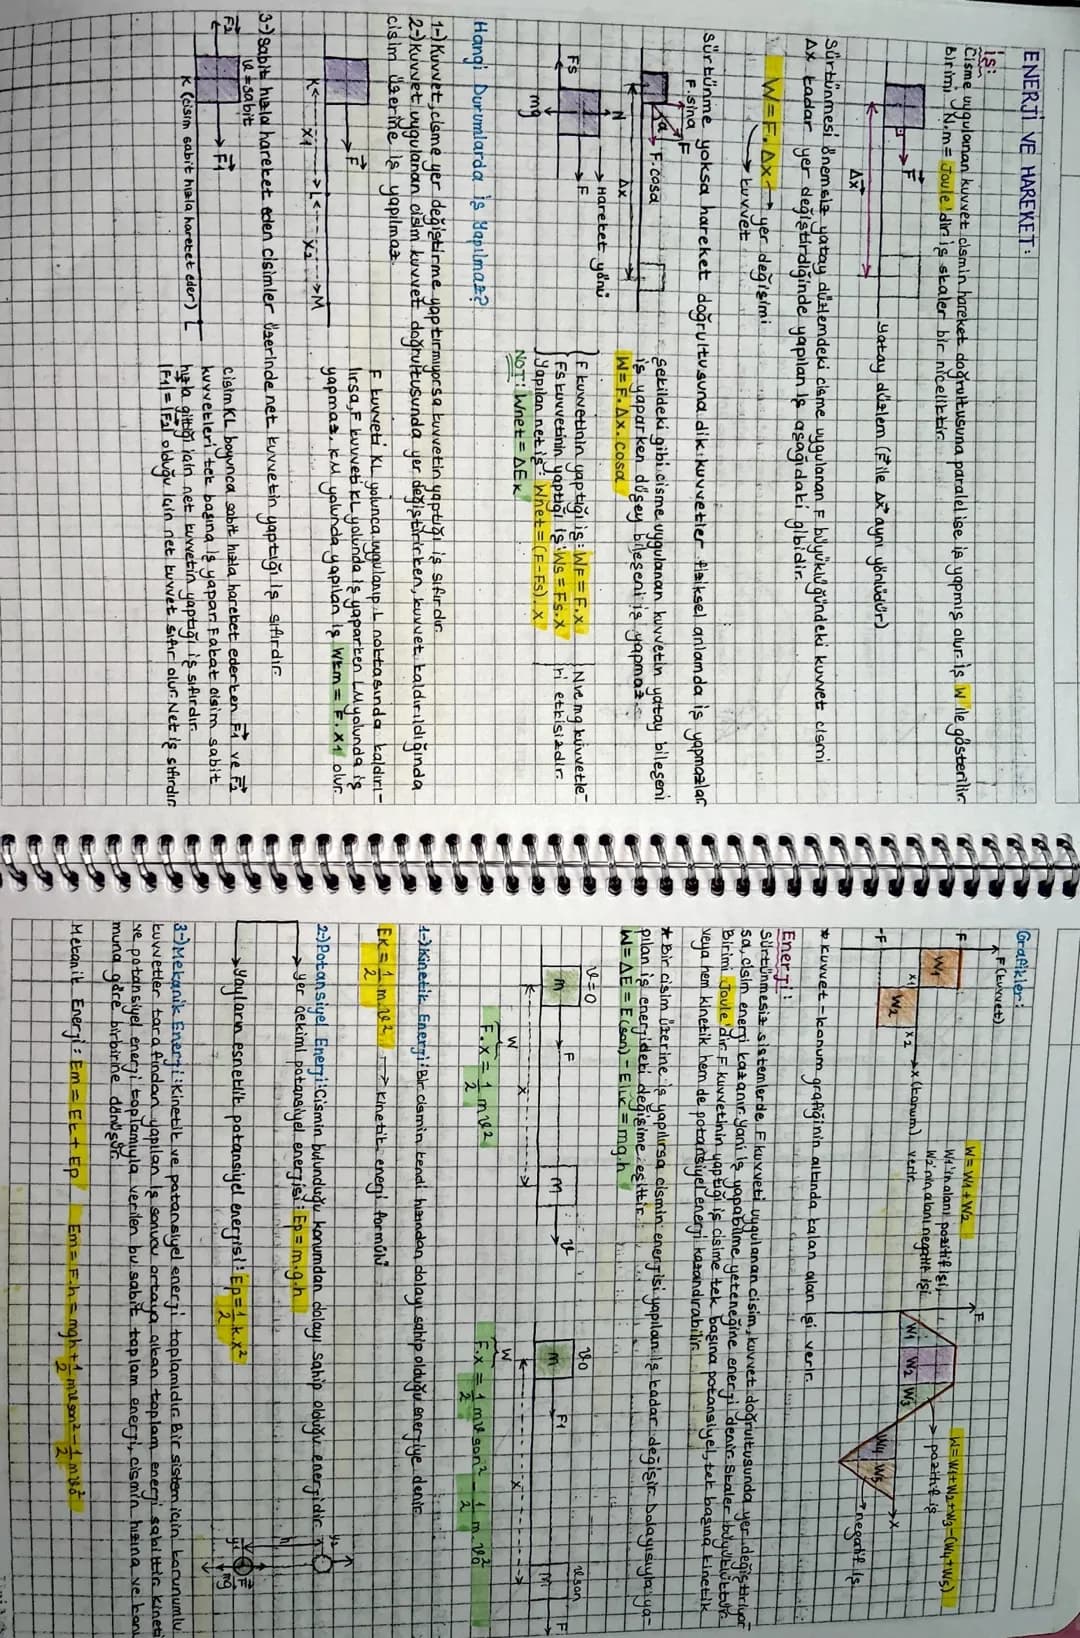 ENERJİ VE HAREKET:
İş:
Cisme uygulanan kuvvet cismin hareket doğrultusuna paralel ise iş yapmış olur. iş W ile gösterilir.
birimi N.m = Joule'dir. iş skaler bir niceliktir.
F
Δx
yatay düzlem (F ile Δx aynı yönlüdür)
Sürtünmesi önemsiz yatay düzlemdeki cisme uygulanan F büyüklüğündeki kuvvet cismi
Δx kadar yer değiştirdiğinde yapılan iş aşağıdaki gibidir.
W=F.Δx → yer değişimi
→ kuvvet
Sürtünme yoksa hareket doğrultusuna dik kuvvetler fiziksel anlamda iş yapmazlar
F.sina F
a F.cosa
Δx
Şekildeki gibi cisme uygulanan kuvvetin yatay bileşeni
iş yaparken düşey bileşeni iş yapmaz.
W=F.Δx.cosa
N
→Hareket yönü
F
Fs
mg
F kuvvetinin yaptığı iş: WF=F.x
Fs kuvvetinin yaptığı iş: Ws=Fs.x
Yapılan net iş: Wnet=(F-Fs).x
N ve mg kuvvetle-
ri etkisizdir.
NOT: Wnet=ΔEk
Hangi Durumlarda iş Yapılmaz?
1-)Kuvvet, cisme yer değiştirme yaptırmıyorsa kuvvetin yaptığı iş sıfırdır.
2-)Kuvvet uygulanan cisim kuvvet doğrultusunda yer değiştirirken, kuvvet kaldırıldığında
cisim üzerine iş yapılmaz.
F
K<---x1--->L<---x2--->M
F kuvveti KL yolunca uygulanıp L noktasında kaldırı-
lırsa, F kuvveti KL yolunda iş yaparken LM yolunda iş
yapmaz. KM yolunda yapılan iş Wkm=F.x1 olur.
3-)Sabit hızla hareket eden cisimler üzerinde net kuvvetin yaptığı iş sıfırdır.
v=sabit
F2 F1
K (cisim sabit hızla hareket eder) L
cisim KL boyunca sabit hızla hareket ederken F1 ve F2
kuvvetleri tek başına iş yapar. Fakat cisim sabit
hızla gittiği için net kuvvetin yaptığı iş sıfırdır.
|F1|=|F2| olduğu için net kuvvet sıfır olur. Net iş sıfırdır
Grafikler:
F(kuvvet)
F
W1
x1
W2
x2
x(konum)
-F
W=W1+W2
W1'in alanı pozitif işi,
W2'nin alanı negatif işi
verir.
F
W1 W2 W3
W4 W5
x
W=W1+W2+W3-(W4+W5)
→ pozitif iş
→ negatif iş
*Kuvvet-konum grafiğinin altında kalan alan işi verir.
Enerji:
Sürtünmesiz sistemlerde F kuvveti uygulanan cisim, kuvvet doğrultusunda yer değiştiriyor-
sa, cisim enerji kazanır. Yani iş yapabilme yeteneğine enerji denir. Skaler büyüklüktür.
Birimi Joule'dir. F kuvvetinin yaptığı iş cisime tek başına potansiyel, tek başına kinetik
veya hem kinetik hem de potansiyel enerji kazandırabilir.
*Bir cisim üzerine iş yapılırsa cismin enerjisi yapılan iş kadar değişir. Dolayısıyla ya-
pılan iş enerjideki değişime eşittir.
W=ΔE=E(son)-E ilk=mg.h
v=0
m F m v
x
W
F.x=1/2 mv²
v0 vson
m F1 m F
x
W
F.x=1/2 mvson²-1/2 m.v0²
1-)Kinetik Enerji: Bir cismin kendi hızından dolayı sahip olduğu enerjiye denir.
Ek=1/2 m.v² → kinetik enerji formülü
2-)Potansiyel Enerji: Cismin bulunduğu konumdan dolayı sahip olduğu enerjidir.
→ yer çekimi potansiyel enerjisi: Ep=m.g.h
→ Yayların esneklik potansiyel enerjisi: Ep=1/2 k.x²
h
F
mg
3-)Mekanik Enerji: Kinetik ve potansiyel enerji toplamıdır. Bir sistem için korunumlu
kuvvetler tarafından yapılan iş sonucu ortaya çıkan toplam enerji sabittir. Kineti
ve potansiyel enerji toplamıyla verilen bu sabit toplam enerji, cismin hızına ve konu
muna göre birbirine dönüşür.
Mekanik Enerji: Em=Ek+Ep Em=F.h=mgh+1/2 mvson²-1/2 mv0²